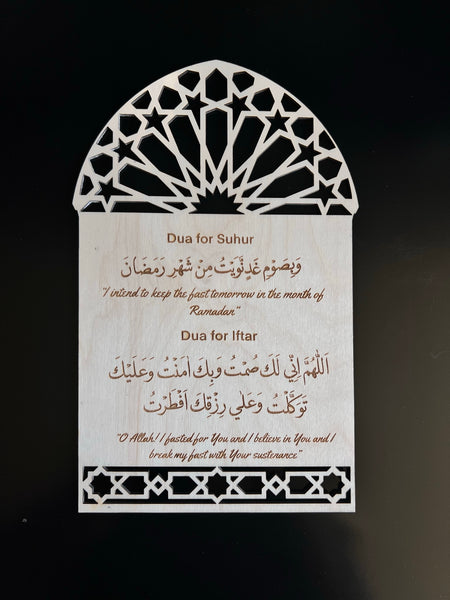 Dua for Suhur
وَبِصَوْمِ غَدٍنَّوَيْتُ مِنْ شَهْرِ رَمَضَانَ
"I intend to keep the fast tomorrow in the month of
Ramadan"
Dua for Iftar
اَللّٰهُمَّ اِنِّي لَكَ صُمْتُ وَبِكَ اٰمَنْتُ وَعَلَيْكَ
تَوَكَّلْتُ وَعَلٰي رِزْقِكَ اَفْطَرْتُ
"O Allah! I fasted for You and I believe in You and I
break my fast with Your sustenance"